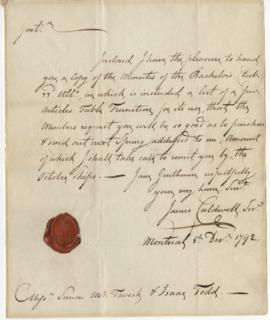 Gent.n
Inclosed I have the pleasure to hand
you a copy of the Minutes of the Bachelors Club
in which is included a list of a few
Articles Table Furniture for its use, that the
Members request you will be so good as to purchase
& send out next Spring addressed to me, Amount
of which I shall take care to remit you by the
October Ships. — I am Gentlemen respectfully
your very hum. Serv.t
James Caldwell Sec.y
Montreal 5.th Dec.r 1792
Mess.rs Simon Mc Tavish & Isaac Todd. —